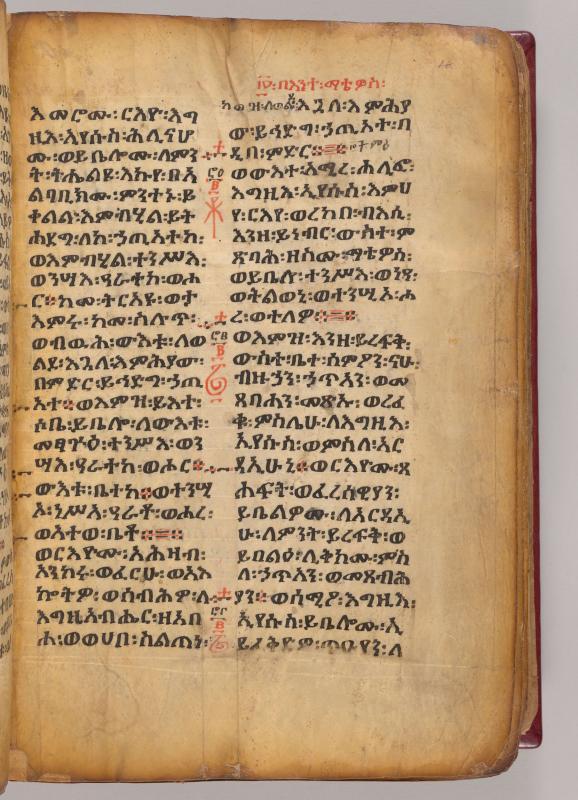 በእንተ፡ማቴዎስ፡
እመሮሙ፡ርእዮ፡እግ
ዚእ፡ኢየሱስ፡ሕሊናሆ
ሙ፡ወይቤሎሙ፡ለምን
ት፡ትሔልዩ፡እኩየ፡በአ
ልባቢክሙ፡ምንተኑ፡ይ
ቀልል፡እምብሂል፡ይት
ሐደግ፡ለከ፡ኃጢአትከ፡
ወእምብሂል፡ተንሥእ፡
ወንሣእ፡ዓራተከ፡ወሑ
ር፡ከመ፡ትርአዩ፡ወት
እምሩ፡ከመ፡ስሉጥ፡
ወብዉሕ፡ውእቱ፡ለወ
ልደ፡እጓለ፡እምሕያው፡
በምድር፡ይኅድግ፡ኃጢ
አተ፡ወእምዝ፡ይእተ፡
ሶበ፡ይቤሎ፡ለውእቱ፡
መፃጕዕ፡ተንሥእ፡ወን
ሣእ፡ዓራተከ፡ወሖር።
ውእቱ፡ቤተከ።ወተንሢ
አ፡ነሥአ፡ዓራቶ፡ወሐረ፡
ወአተወ፡ቤቶ።
ወርእዮሙ፡አሕዛብ፡
አንከሩ፡ወፈርሁ፡ወአእ
ኰትዎ፡ወሰብሕዎ፡ለ
እግዚአብሔር፡ዘአበ
ሐ፡ወወሀበ፡ስልጣነ፡
እጓለ፡እምሕያ
ው፡ይኅድግ፡ኃጢአት፡በ
ዲበ፡ምድር።
ወውእተ፡አሚረ፡ሐሊፎ፡
እግዚእ፡ኢየሱስ፡እምህ
የ፡ርእየ፡ወረከበ፡ብእሲ፡
እንዘ፡ይነብር፡ውስተ፡ም
ጽባሕ፡ዘስሙ፡ማቴዎስ፡
ወይቤሎ፡ተንሥእ፡ወንዒ፡
ወትልወኒ፡ወተንሢኦ፡ሖ
ረ፡ወተለዎ።
ወእምዝ፡እንዘ፡ይረፍቅ፡
ውስተ፡ቤተ፡ስምዖን፡ናሁ፡
ብዙኃን፡ኃጥኣን፡ወመ
ጸብሐን፡መጽኡ፡ወረፈ
ቁ፡ምስሌሁ፡ለእግዚእ፡
ኢየሱስ፡ወምስለ፡አር
ዳኢሁኒ።ወርእዮሙ፡ጸ
ሐፍት፡ወፈሪሳዊያን፡
ይቤልዎሙ፡ለአርዳኢ
ሁ፡ለምንት፡ይረፍቅ፡ወ
ይበልዕ፡ሊቅክሙ፡ምስ
ለ፡ኃጥኣን፡ወመጸብሕ
ያን።ወሰሚዖ፡እግዚእ፡
ኢየሱስ፡ይቤሎሙ፡ኢ
ይፈቅድዎ፡ጥዑያን፡ለ